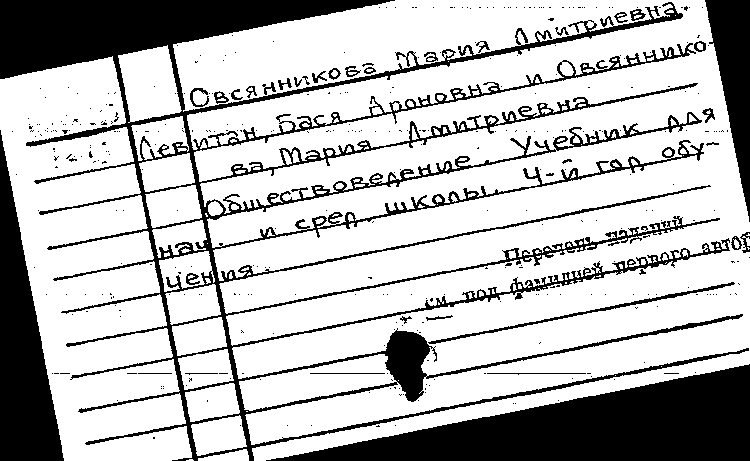 Овсянникова, Мария Дмитриевна.
Левитан, Бася Ароновна и Овсяннико-
ва, Мария Дмитриевна
Обществоведение. Учебник для
нач. и сред. школы. 4-й год обу-
чения.
Перечень изданий
см. под фамилией первого автор